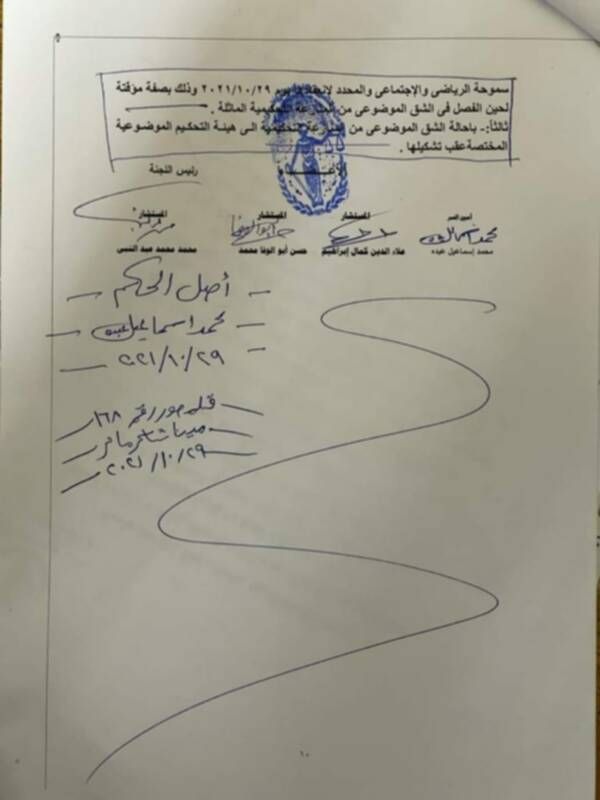 سموحة الرياضى والإجتماعى والمحدد لإنعقادها يوم ٢٠٢١/١٠/٢٩ وذلك بصفة مؤقتة
لحين الفصل فى الشق الموضوعى من المنازعة التحكيمية الماثلة .
ثالثاً:- بإحالة الشق الموضوعى من المنازعة التحكيمية الى هيئة التحكيم الموضوعية
المختصة عقب تشكيلها .
الأعضاء
رئيس اللجنة
أمين السر
المستشار
المستشار
المستشار
محمد إسماعيل عبده
علاء الدين كمال إبراهيم
حسن أبو الوفا محمد
محمد محمد عبد النبى
- أصل الحكم -
- محمد اسماعيل عبده -
- ٢٠٢١/١٠/٢٩ -
قلم صور رقم ١٦٨
٢٠٢١/١٠/٢٩
١٠